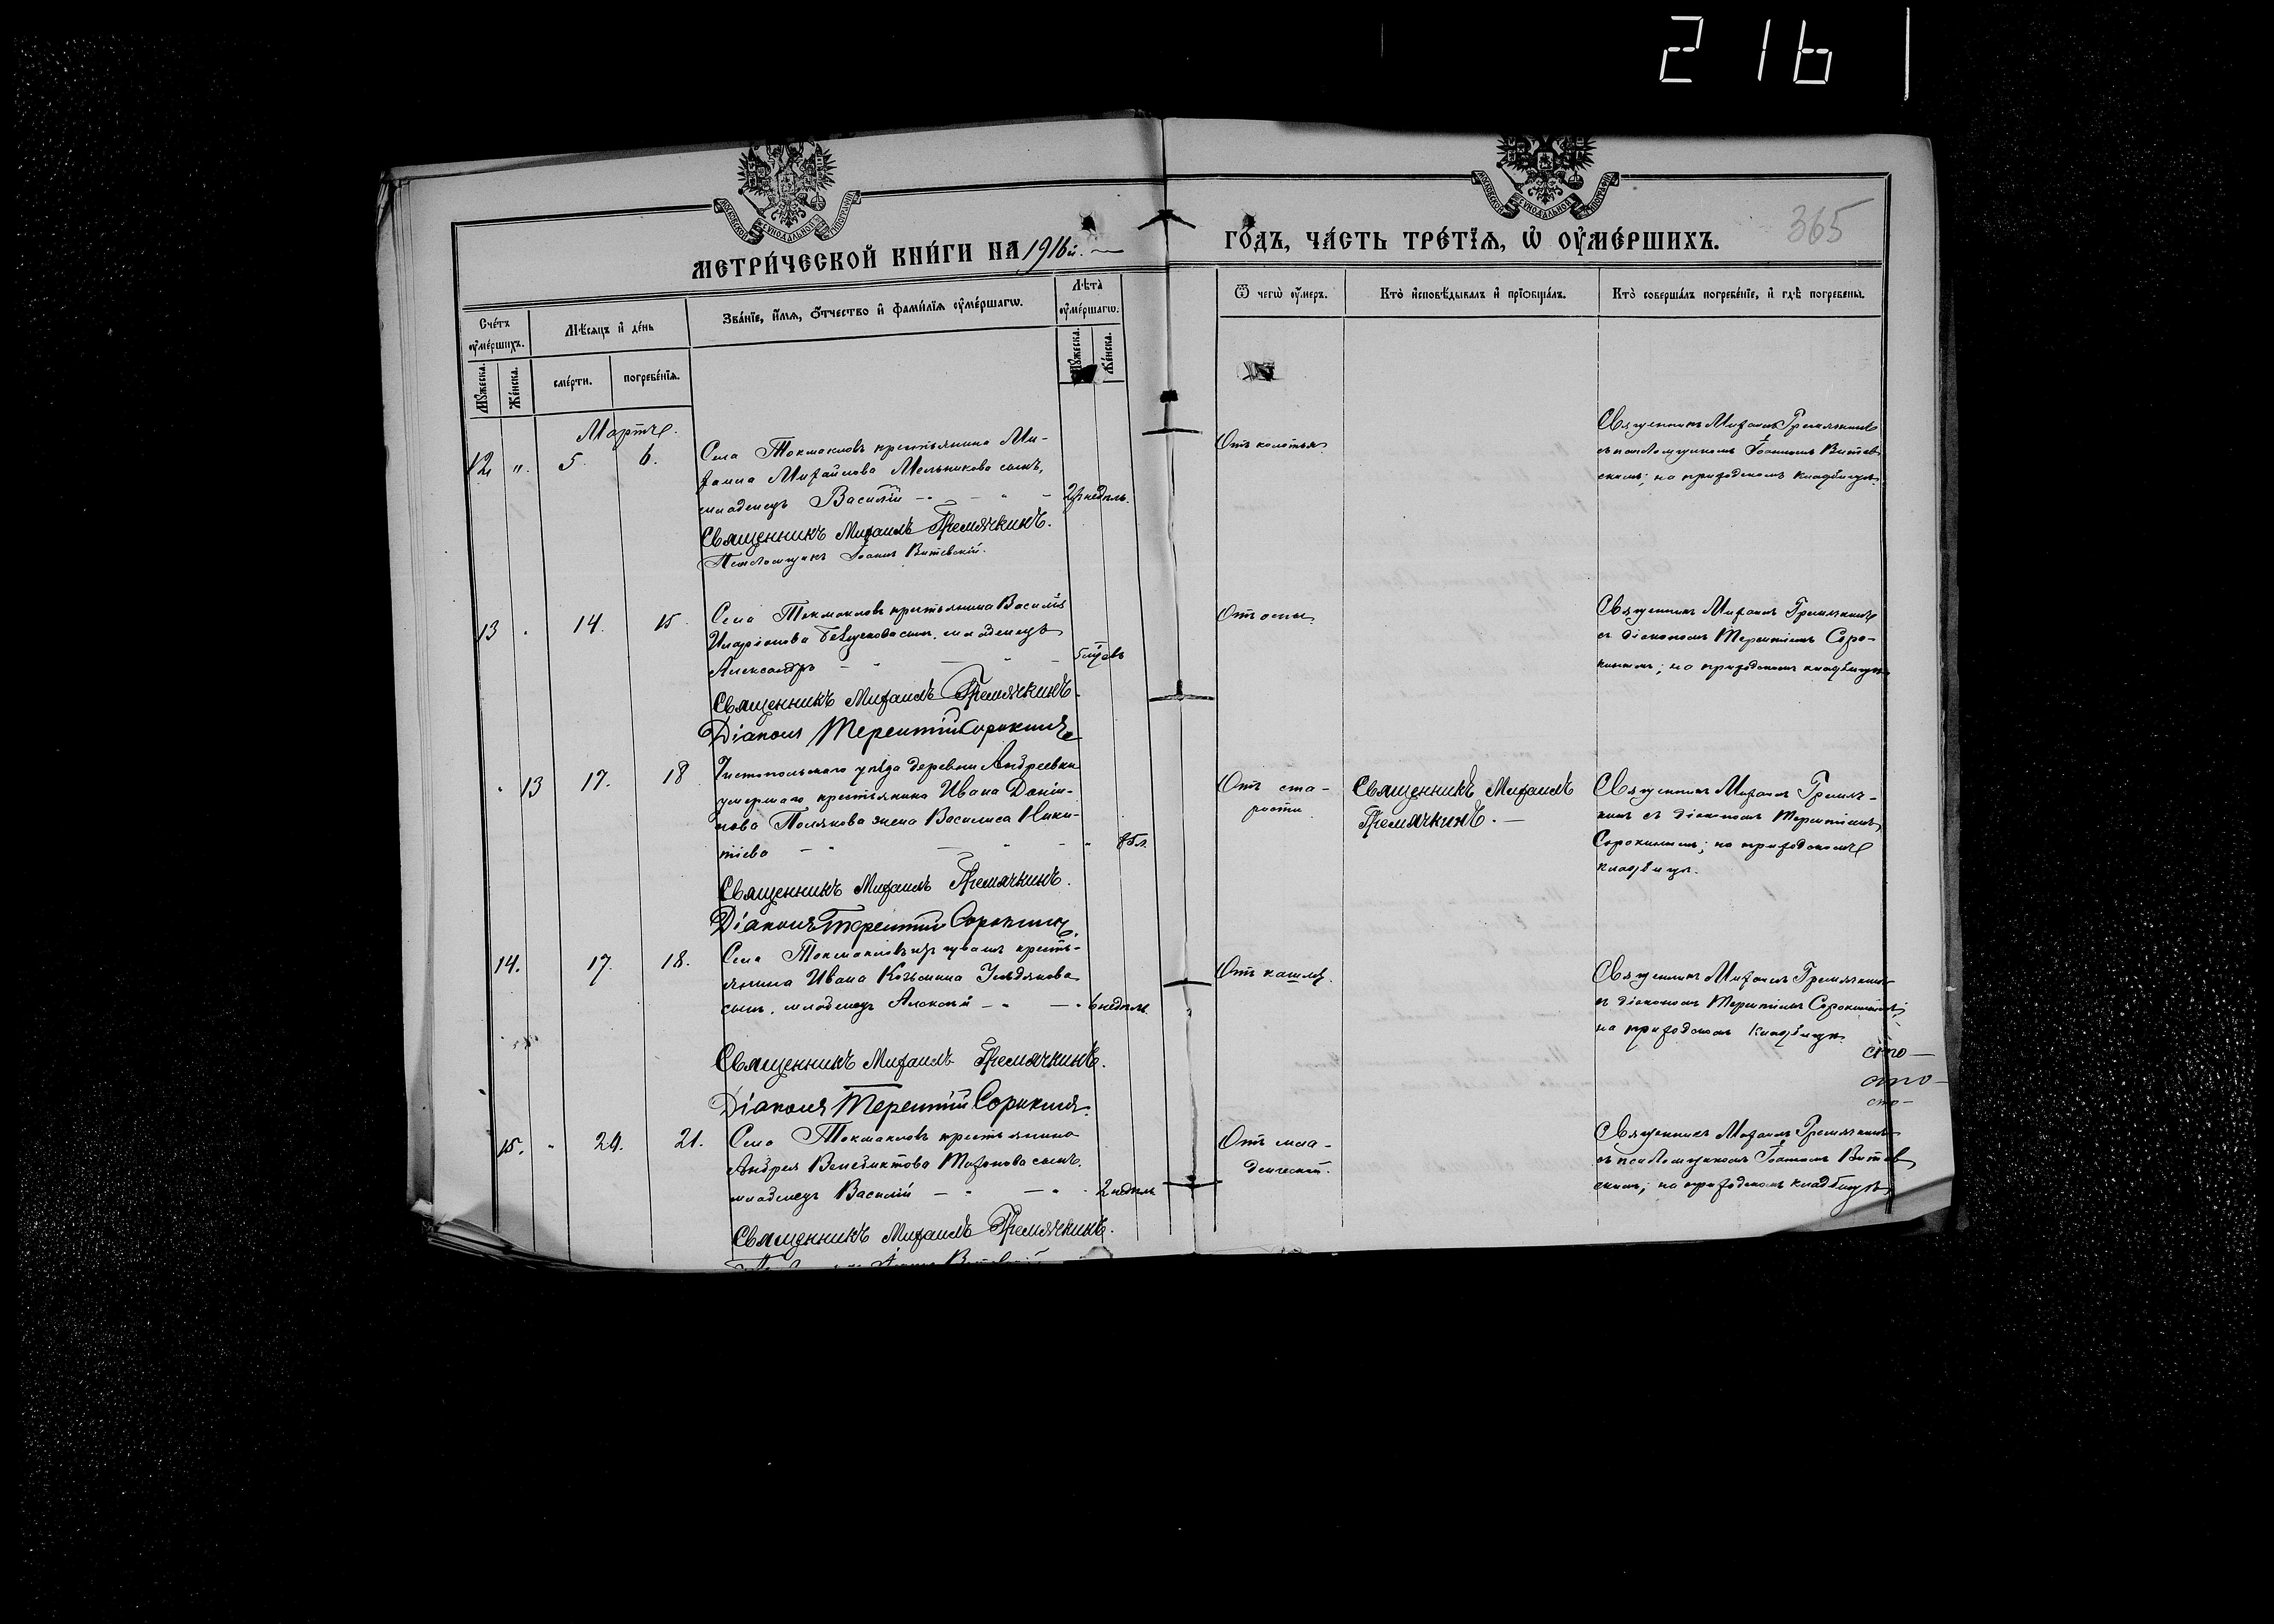 216
МЕТРИ́ЧЕСКОЙ КНИ́ГИ НА 1916 й.
ГО́ДЪ, ЧА́СТЬ ТРЕ́ТІѦ, Ѡ҆ ОУ҆МЕ́РШИХЪ.
365
Сче́тъ оу҆ме́ршихъ.
Мѣ́сѧцъ и҆ де́нь
Зва́нїе, и҆́мѧ, ѻ҆́тчество и҆ фамѝлїѧ оу҆ме́ршагѡ.
Лѣ̀та оу҆ме́ршагѡ.
Ѿ чегѡ̀ оу҆́меръ.
Кто̀ и҆сповѣ́дывалъ и҆ прїѡбща́лъ.
Кто̀ соверша́лъ погребе́нїе, и҆ гдѣ̀ погребены̀.
Мꙋ́жеска.
Же́нска.
сме́рти.
погребе́нїѧ.
Мꙋ́жеска.
Же́нска.
Мартъ.
12 " 5. 6.
Села Токмаклов крестьянина Ми-
хаила Михайлова Мельникова сынъ,
младенецъ Василій
недѣль.
Священникъ Михаилъ Гремячкинъ.
Псаломщикъ Іоаннъ Витевскій.
Отъ колотья.
Священникъ Михаилъ Гремячкинъ
съ псаломщикомъ Іоанномъ Витев-
скимъ; на приходскомъ кладбищѣ.
13 " 14. 15.
Села Токмаклов крестьянина Василія
Иларіонова сынъ, младенецъ
Александръ
5 мѣсяцъ
Священникъ Михаилъ Гремячкинъ.
Діаконъ Терентій Сорокинъ
Отъ оспы.
Священникъ Михаилъ Гремячкинъ
съ діакономъ Терентіемъ Соро-
кинымъ; на приходскомъ кладбищѣ
" 13 17. 18
Чистопольскаго уѣзда деревни Андреевки
умершаго крестьянина Ивана Дани-
лова Полякова жена Василиса Ники-
тіева
85 л.
Священникъ Михаилъ Гремячкинъ.
Діаконъ Терентій Сорокинъ.
Отъ ста-
рости.
Священникъ Михаилъ
Гремячкинъ.
Священникъ Михаилъ Гремяч-
кинъ съ діакономъ Терентіемъ
Сорокинымъ; на приходскомъ
кладбищѣ.
14. 17. 18.
Села Токмаклов изъ чувашъ кресть-
янина Ивана Козьмина
сынъ, младенецъ Алексѣй
6 недѣль.
Священникъ Михаилъ Гремячкинъ.
Діаконъ Терентій Сорокинъ.
Отъ кашля.
Священникъ Михаилъ Гремячкинъ
съ діакономъ Терентіемъ Сорокинымъ;
на приходскомъ кладбищѣ.
сто—
сто—
сто—
15. " 20. 21.
Села Токмаклов крестьянина
Андрея Венедиктова сынъ,
младенецъ Василій
2 недѣль
Священникъ Михаилъ Гремячкинъ.
Отъ мла-
денческой.
Священникъ Михаилъ Гремячкинъ
съ псаломщикомъ Іоанномъ Витев-
скимъ; на приходскомъ кладбищѣ